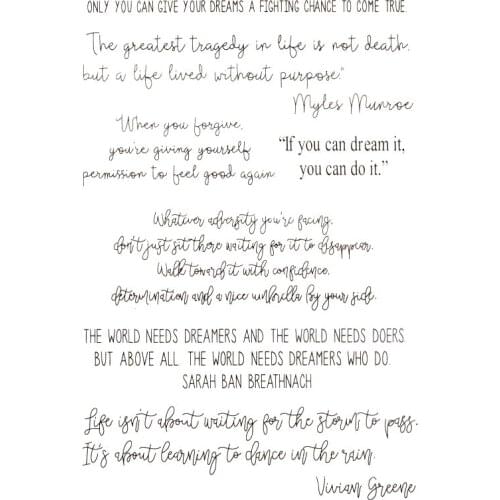 ONLY YOU CAN GIVE YOUR DREAMS A FIGHTING CHANCE TO COME TRUE.
The greatest tragedy in life is not death,
but a life lived without purpose."
Myles Munroe
When you forgive,
you're giving yourself
permission to feel good again
“If you can dream it,
you can do it.”
Whatever adversity you're facing,
don't just sit there waiting for it to disappear.
Walk toward it with confidence,
determination and a nice umbrella by your side.
THE WORLD NEEDS DREAMERS AND THE WORLD NEEDS DOERS.
BUT ABOVE ALL, THE WORLD NEEDS DREAMERS WHO DO.
SARAH BAN BREATHNACH
Life isn't about waiting for the storm to pass.
It's about learning to dance in the rain.
Vivian Greene